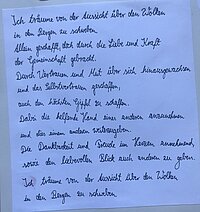 Ich träume von der Aussicht über den Wolken
in den Bergen zu schweben.
Allein geschafft, doch durch die Liebe und Kraft
der Gemeinschaft gebracht.
Durch Vertrauen und Mut über sich hinausgewachsen
und das Selbstvertrauen geschaffen,
auch den höchsten Gipfel zu schaffen.
Dabei die helfende Hand eines anderen anzunehmen
und dies einem anderen weiterzugeben.
Die Dankbarkeit und Freude im Herzen annehmend,
sowie den liebevollen Blick auch anderen zu geben.
Ich träume von der Aussicht über den Wolken
in den Bergen zu schweben.